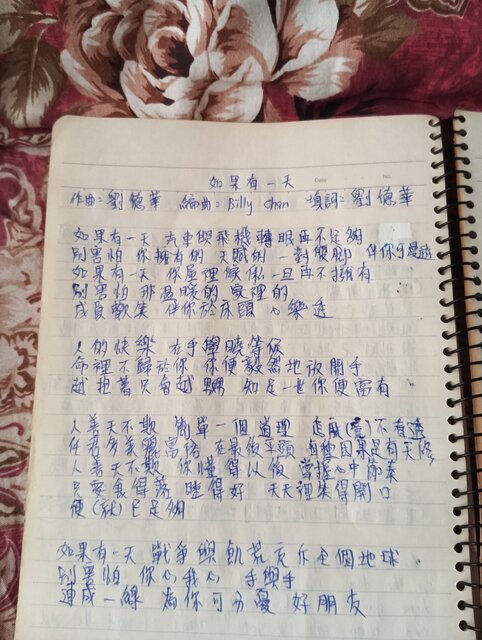 如果有一天
Date
No.
作曲:劉德華 編曲:Billy Chan 填詞:劉德華
如果有一天 汽車與飛機轉眼再不足夠
別害怕 你擁有的 天賦的 一對雙腳 伴你
如果有一天 你屋裡傢俬一旦再不擁有
別害怕 那溫暖的 家裡的
成員歡笑 伴你於床頭 心樂透
人的快樂 在手 等你
命裡不歸於你 你便 地放開手
越 只有越 知足一世你便富有
人善天不欺 簡單一個道理 不看透
任君多美麗富裕 在最後 因果是有天修
人善天不欺 你懂得以後 掌握心中節奏
只要食得落 睡得好 天天裡笑得開口
便(就)已足夠
如果有一天 戰爭與飢荒 全個地球
別害怕 你心我心 手與手
連成一線 為你可分憂 好朋友